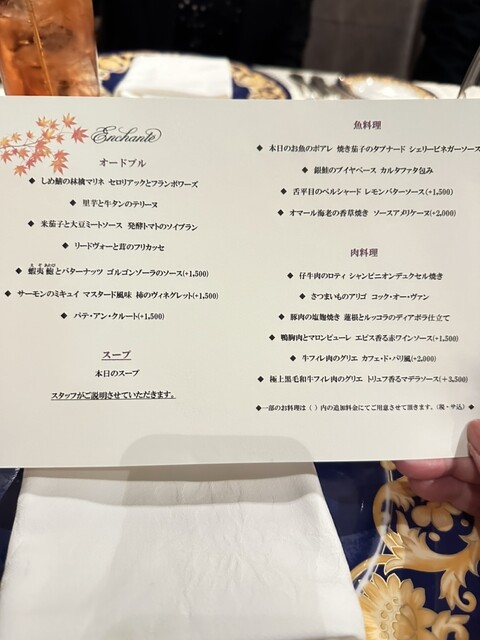 Enchante
オードブル
◆ しめ鯖の林檎マリネ セロリアックとフランボワーズ
◆ 里芋と牛タンのテリーヌ
◆ 米茄子と大豆ミートソース 発酵トマトのソイブラン
◆ リードヴォーと茸のフリカッセ
◆ 蝦夷鮑とバターナッツ ゴルゴンゾーラのソース(+1,500)
◆ サーモンのミキュイ マスタード風味 柿のヴィネグレット(+1,500)
◆ パテ・アン・クルート(+1,500)
スープ
本日のスープ
スタッフがご説明させていただきます。
魚料理
◆ 本日のお魚のポアレ 焼き茄子のタプナード シェリービネガーソース
◆ 銀鮭のブイヤベース カルタファタ包み
◆ 舌平目のベルシャード レモンバターソース(+1,500)
◆ オマール海老の香草焼き ソースアメリケーヌ(+2,000)
肉料理
◆ 仔牛肉のロティ シャンピニオンデュクセル焼き
◆ さつまいものアリゴ コック・オー・ヴァン
◆ 豚肉の塩麹焼き 蓮根とルッコラのディアボラ仕立て
◆ 鴨胸肉とマロンピューレ エピス香る赤ワインソース(+1,500)
◆ 牛フィレ肉のグリエ カフェ・ド・パリ風(+2,000)
◆ 極上黒毛和牛フィレ肉のグリエ トリュフ香るマデラソース(+3,500)
◆一部のお料理は ( ) 内の追加料金にてご用意させて頂きます。(税・サ込) ◆